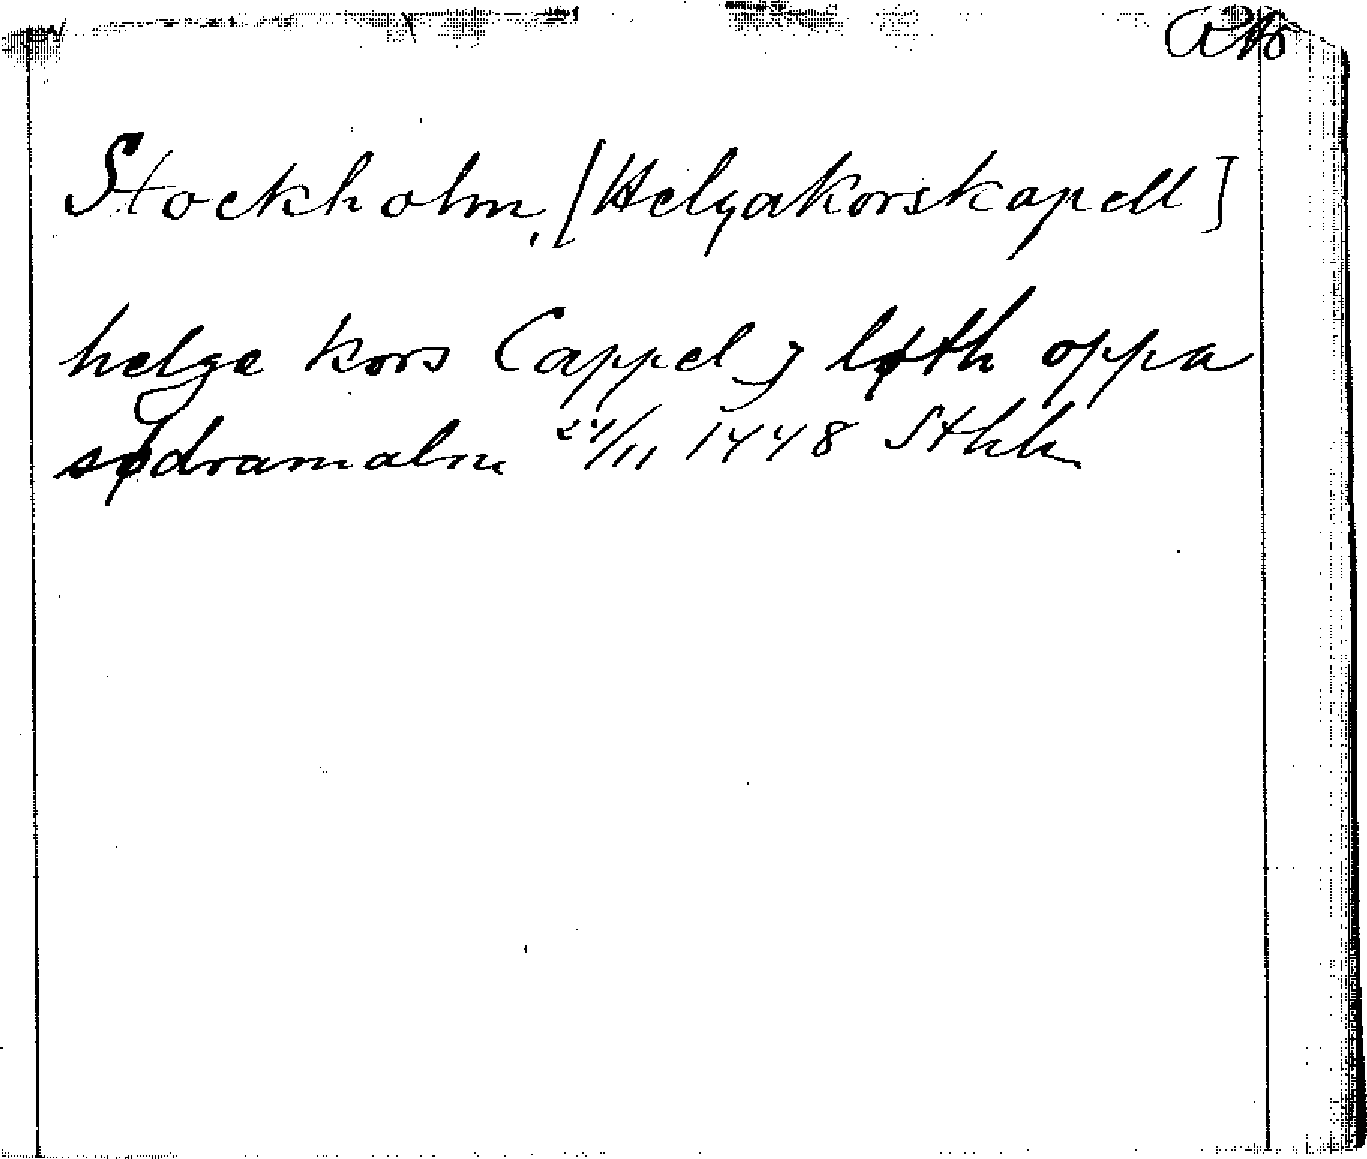 Stockholm, [Helgakorskapell]
helge kors Cappel j løth oppa
sødramalm 24/11 1448 Sthk